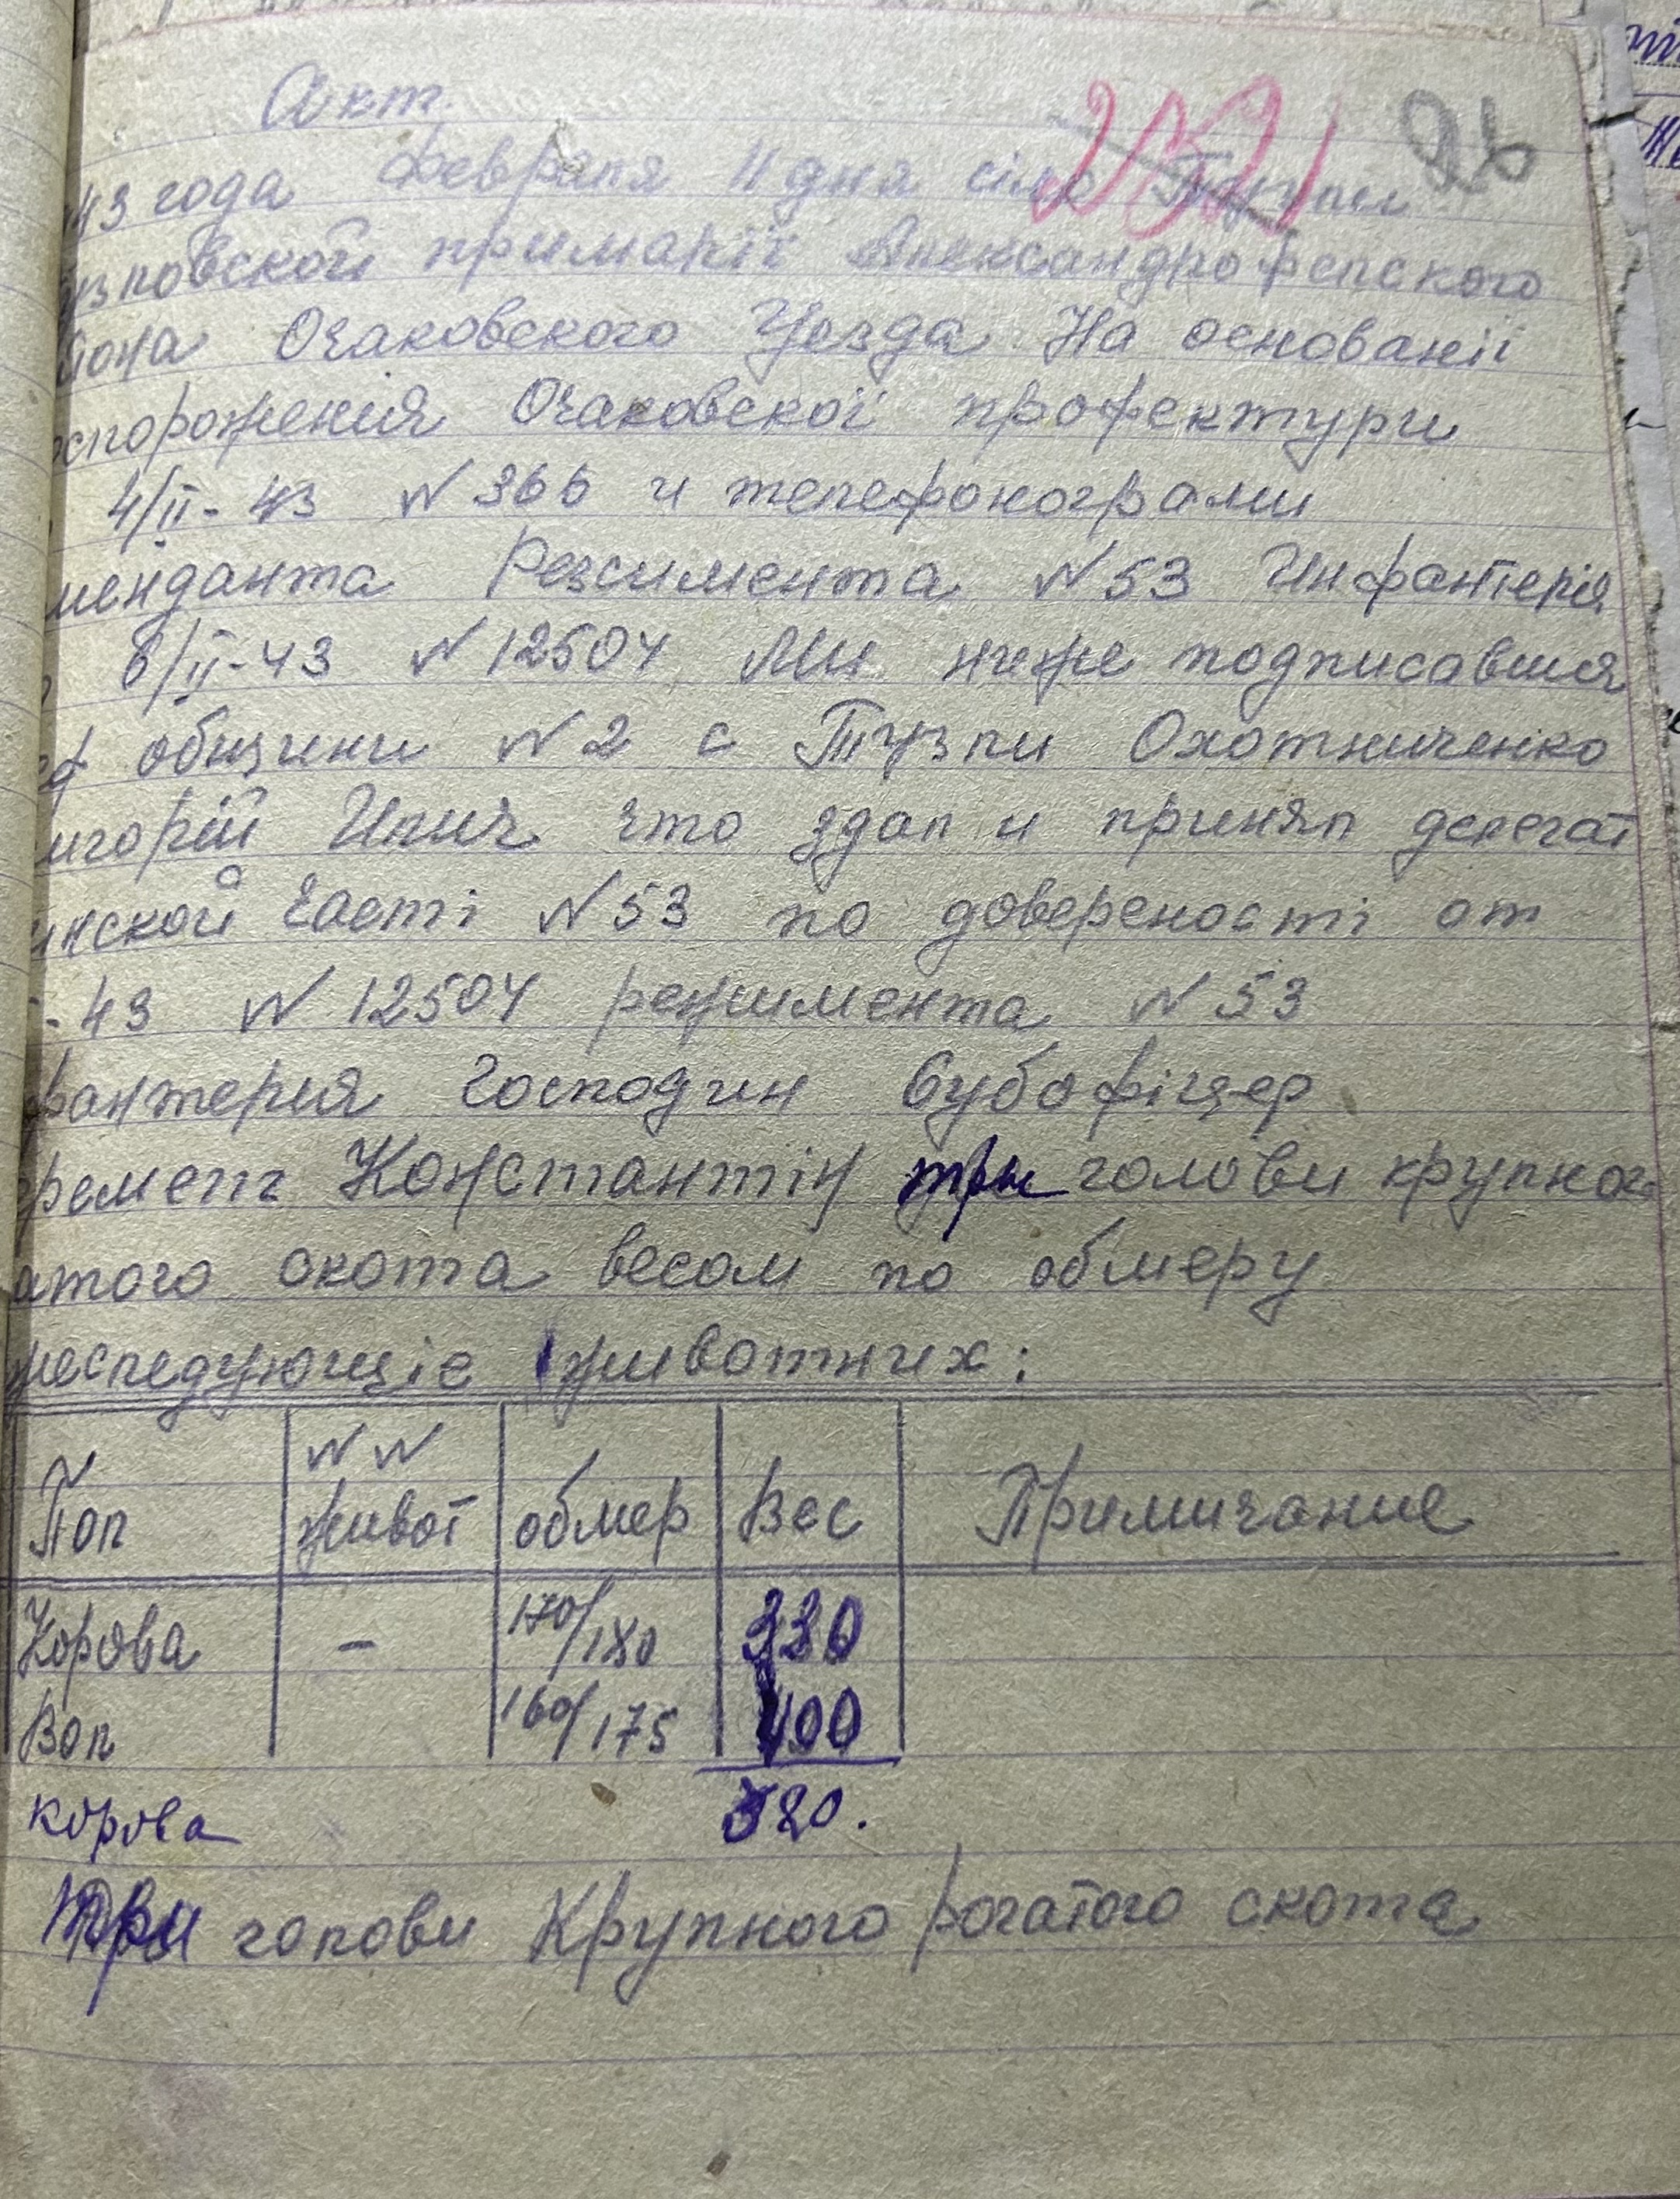 Акт
252 26
43 года Февраля 11 дня село Тузли
узловской примарії Александрофелского
йона Очаковского Уезда. На основаніі
споряжения Очаковскоі профектури
4/II-43 N 366 и телефонограми
менданта Резимента N 53 Инфантерія
6/II-43 N 12504 Ми ниже подписавшия
еф общини N 2 с Тузли Охотниченко
игорій Илич что здал и принял делегат
инской Части N 53 по довереності от
-43 N 12504 режимента N 53
фантерия Господин Субофіцер
еремет Константін три голови крупно
атого скота весом по обмеру
жеследующіе животних:
Пол | NN живот | обмер | Вес | Примичание
Корова | - | 170/180 | 330
Вол | 160/175 | 400
корова 320.
Три голови Крупного рогатого скота